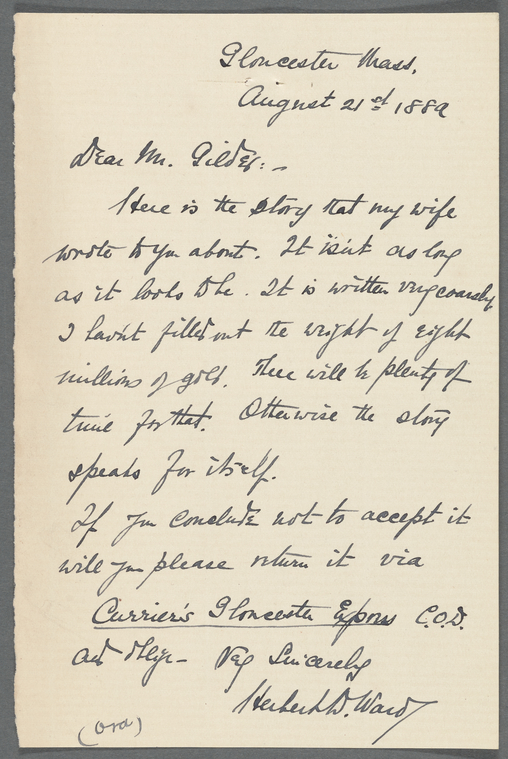 Gloucester Mass.
August 21st 1889
Dear Mr. Gilder:-
Here is the story that my wife
wrote to you about. It isn't as long
as it looks to be. It is written very coarsely
I havn't filled out the weight of eight
millions of gold. There will be plenty of
time for that. Otherwise the story
speaks for itself.
If you conclude not to accept it
will you please return it via
Currier's Gloucester Express C.O.D.
and oblige- Very Sincerely
Herbert D. Ward
(Ova)